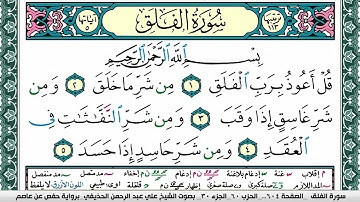 ترتيبها ١١٣
سُورَةُ الْفَلَقِ
آياتها ٥
بِسْمِ اللَّهِ الرَّحْمَٰنِ الرَّحِيمِ
قُلْ أَعُوذُ بِرَبِّ الْفَلَقِ ١ مِن شَرِّ مَا خَلَقَ ٢ وَمِن
شَرِّ غَاسِقٍ إِذَا وَقَبَ ٣ وَمِن شَرِّ النَّفَّاثَاتِ فِي
الْعُقَدِ ٤ وَمِن شَرِّ حَاسِدٍ إِذَا حَسَدَ ٥
سورة الفلق الصفحة ٦٠٤ الحزب ٦٠ الجزء ٣٠ بصوت الشيخ علي عبد الرحمن الحذيفي برواية حفص عن عاصم